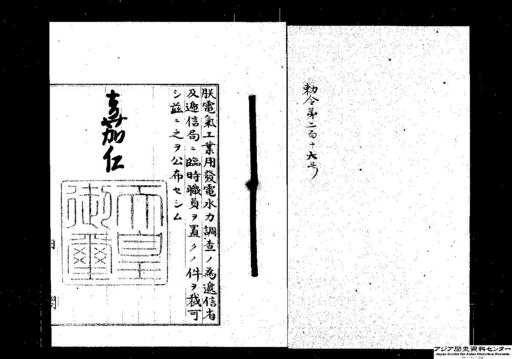 勅令第二百十六号
朕電氣工業用發電水力調査ノ為逓信省
及逓信局ニ臨時職員ヲ置クノ件ヲ裁可
シ茲ニ之ヲ公布セシム
嘉仁
天皇
御璽
アジア歴史資料センター
Japan Center for Asian Historical Records